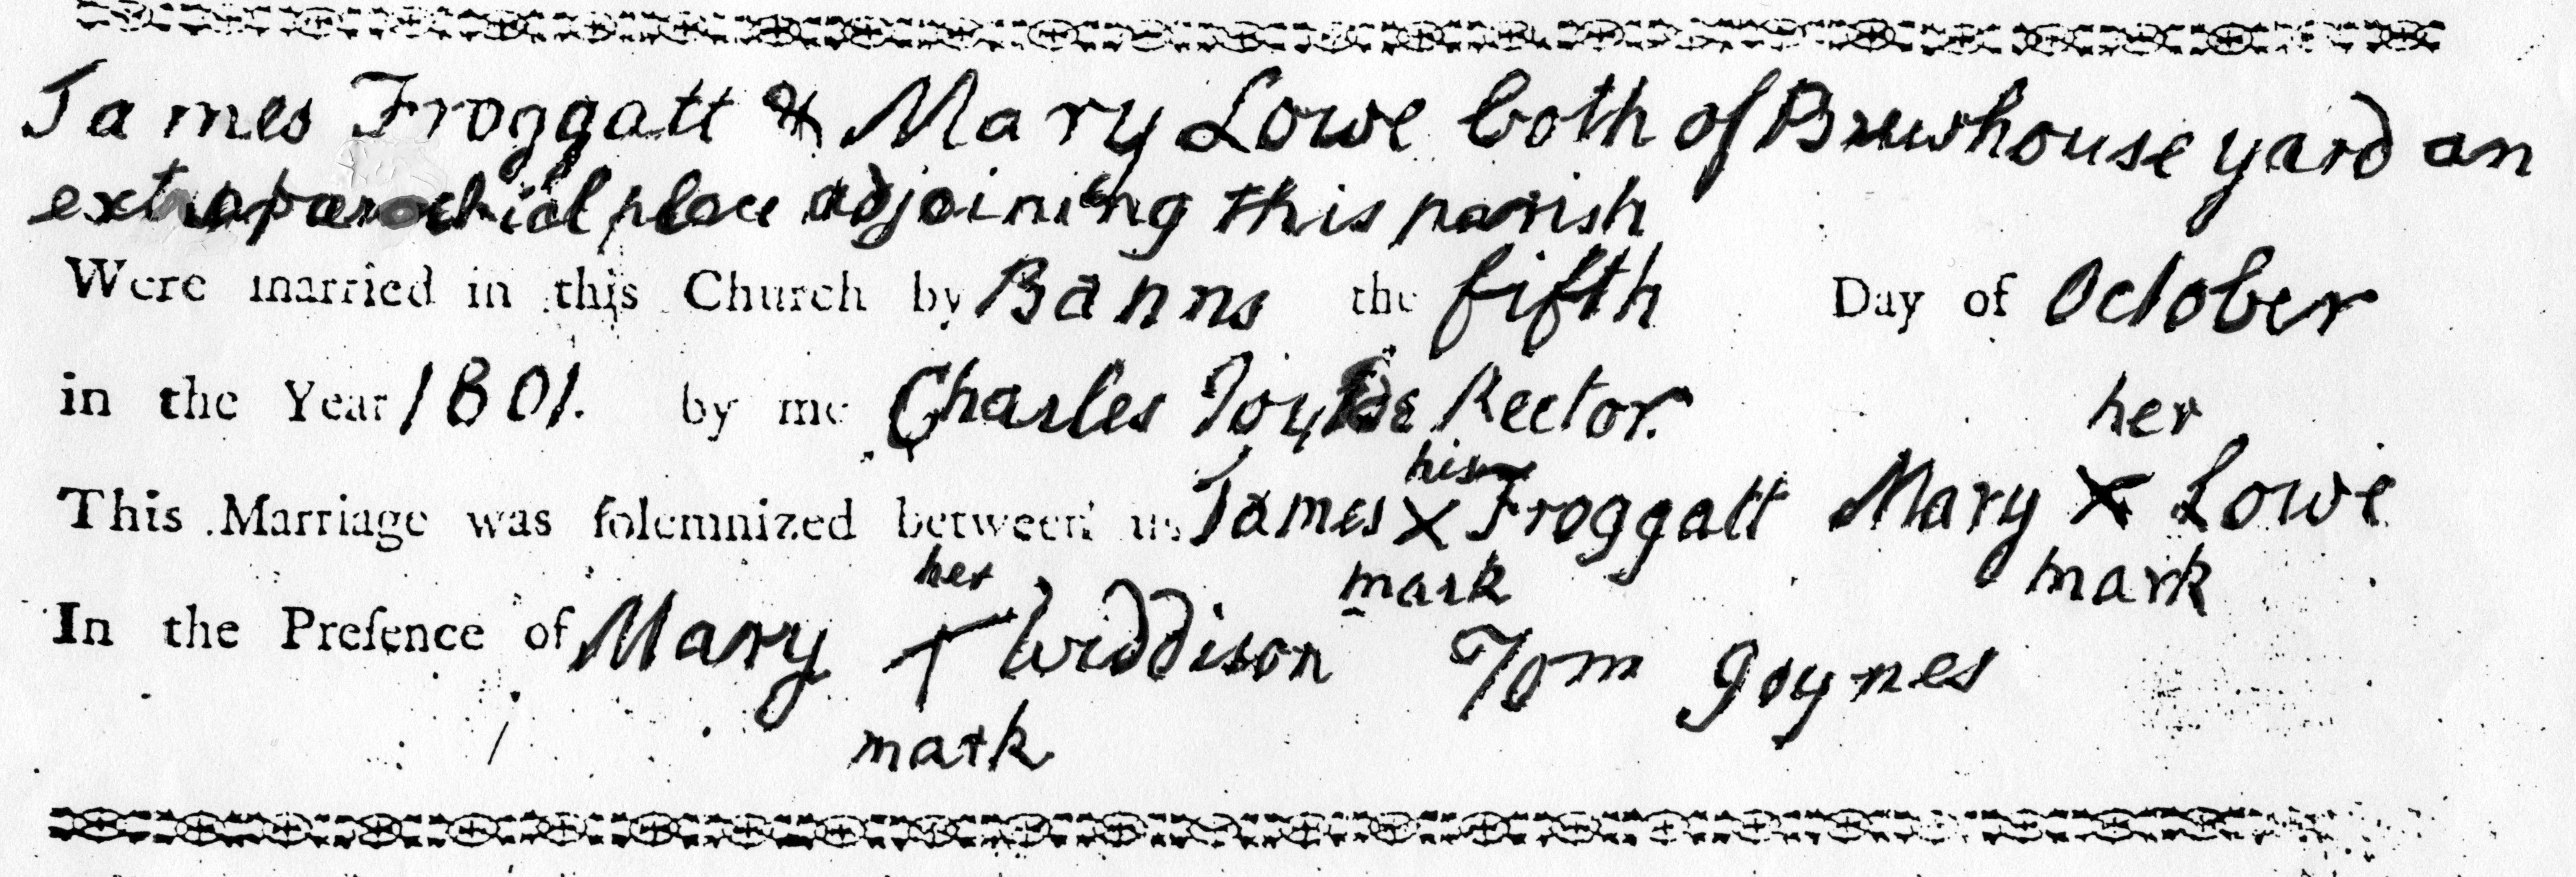 James Froggatt & Mary Lowe both of Brewhouse yard an
extraparochial place adjoining this parish
Were married in this Church by Banns the fifth Day of October
in the Year 1801. by me Charles Rector.
her
his
This Marriage was ſolemnized between us James X Froggatt Mary X Lowe
her mark mark
In the Preſence of Mary + Widdison Tom Joynes
mark